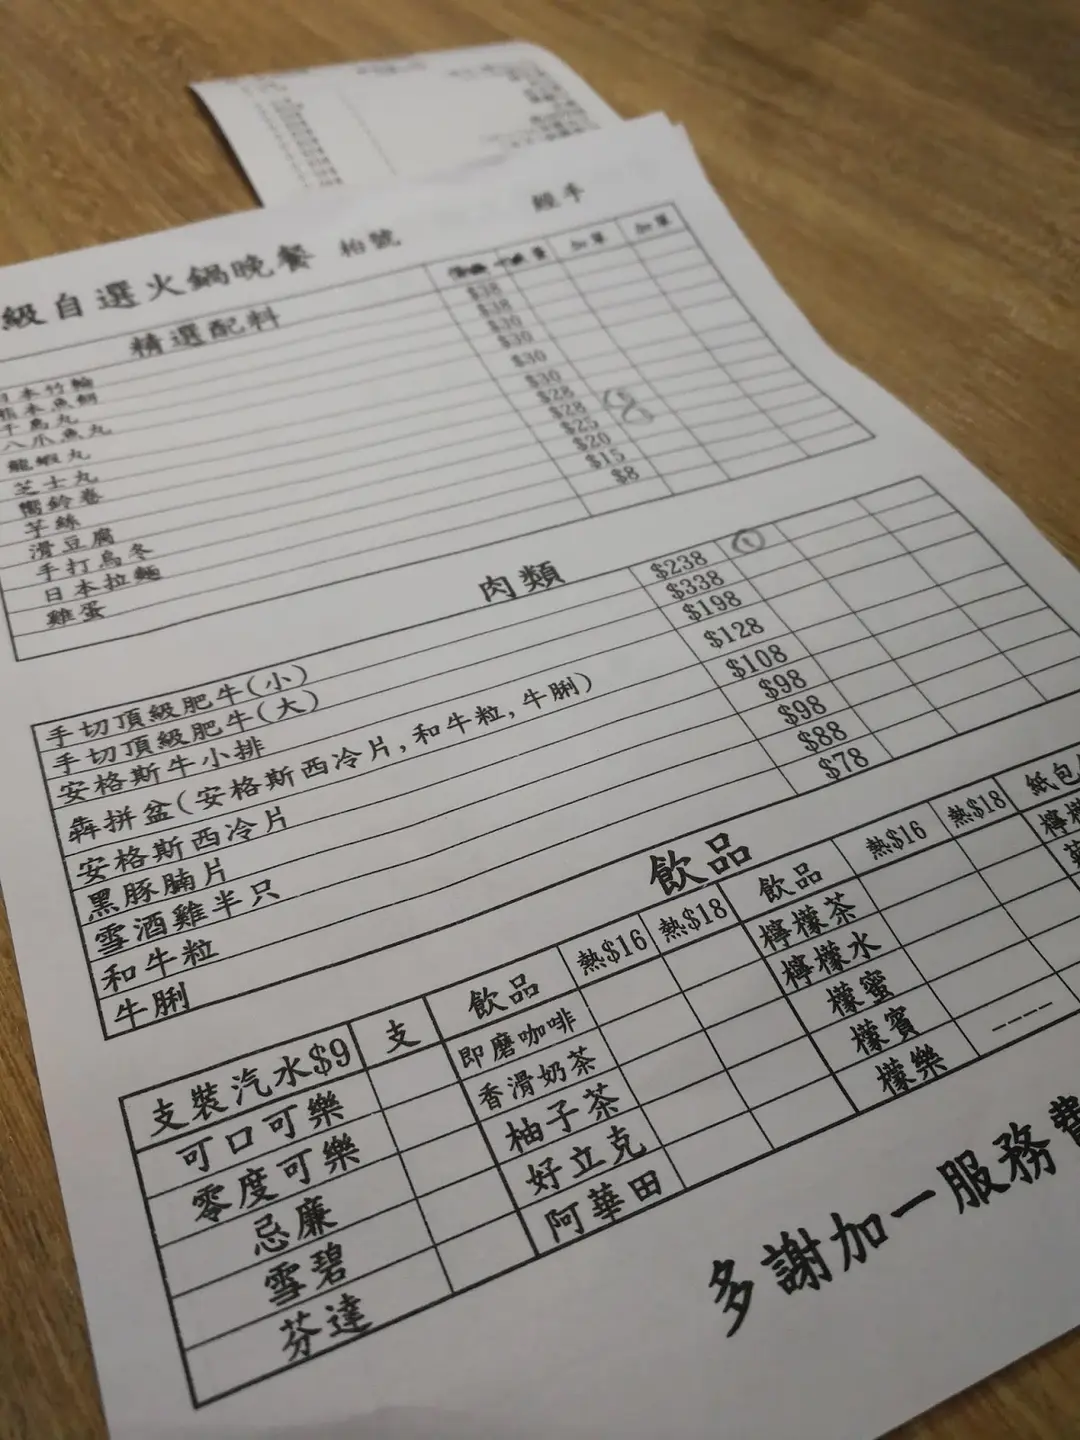 級自選火鍋晚餐 枱號 經手
精選配料 加單 加單
日本竹輪 $38
魚餅 $38
丸 $30
八爪魚丸 $30
龍蝦丸 $30
芝士丸 $30
響鈴卷 $28
芋絲 $28
滑豆腐 $25
手打烏冬 $20
日本拉麵 $15
雞蛋 $8
肉類
手切頂級肥牛(小) $238
手切頂級肥牛(大) $338
安格斯牛小排 $198
犇拼盆(安格斯西冷片,和牛粒,牛脷) $128
安格斯西冷片 $108
黑豚腩片 $98
雪酒雞半只 $98
和牛粒 $88
牛脷 $78
飲品
支裝汽水$9 支 飲品 熱$16 熱$18 飲品 熱$16 熱$18 紙包
可口可樂 即磨咖啡 檸檬茶 檸檬
零度可樂 香滑奶茶 檸檬水
忌廉 柚子茶 檬蜜
雪碧 好立克 檬賓
芬達 阿華田 檬樂 ----
多謝加一服務費